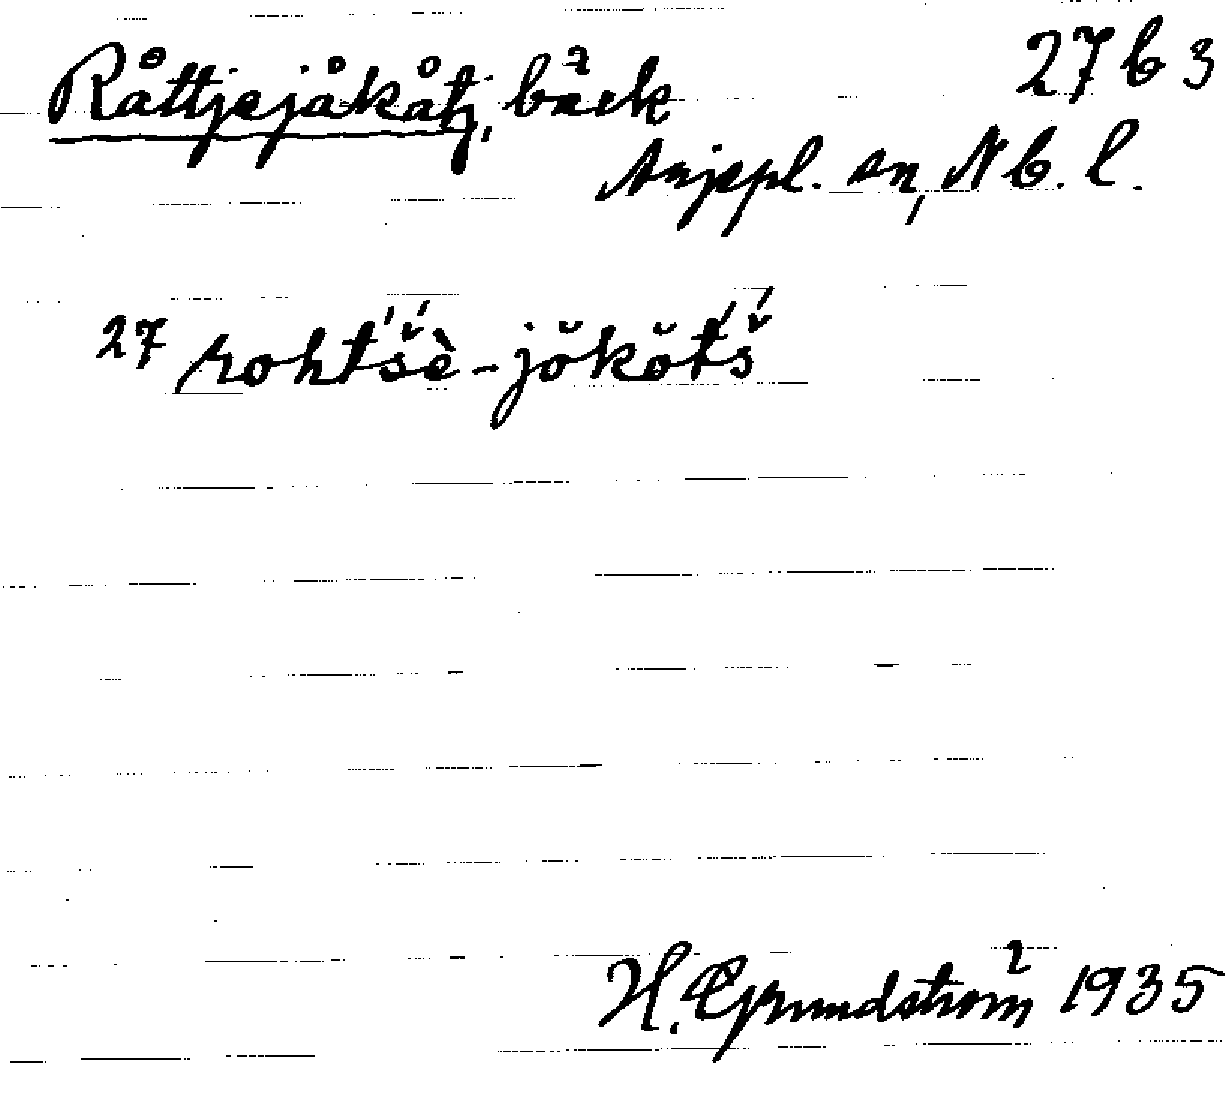 Råttjejåkåtj, bäck 27 b 3
Arjeppl. sn, Nb. l.
27 rohtš́è-jŏkŏt́š́
H. Grundström 1935